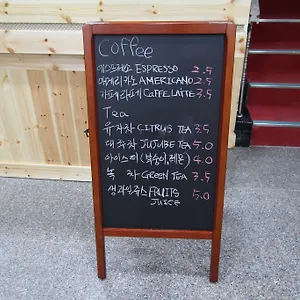 Coffee
에스프레소 ESPRESSO 2.5
아메리카노 AMERICANO 2.5
카페라떼 CAFFE LATTE 3.5
Tea
유자차 CITRUS TEA 3.5
대추차 JUJUBE TEA 5.0
아이스티 (복숭아,레몬) 4.0
녹 차 GREEN TEA 3.5
생과일쥬스 FRUITS 5.0
JUICE